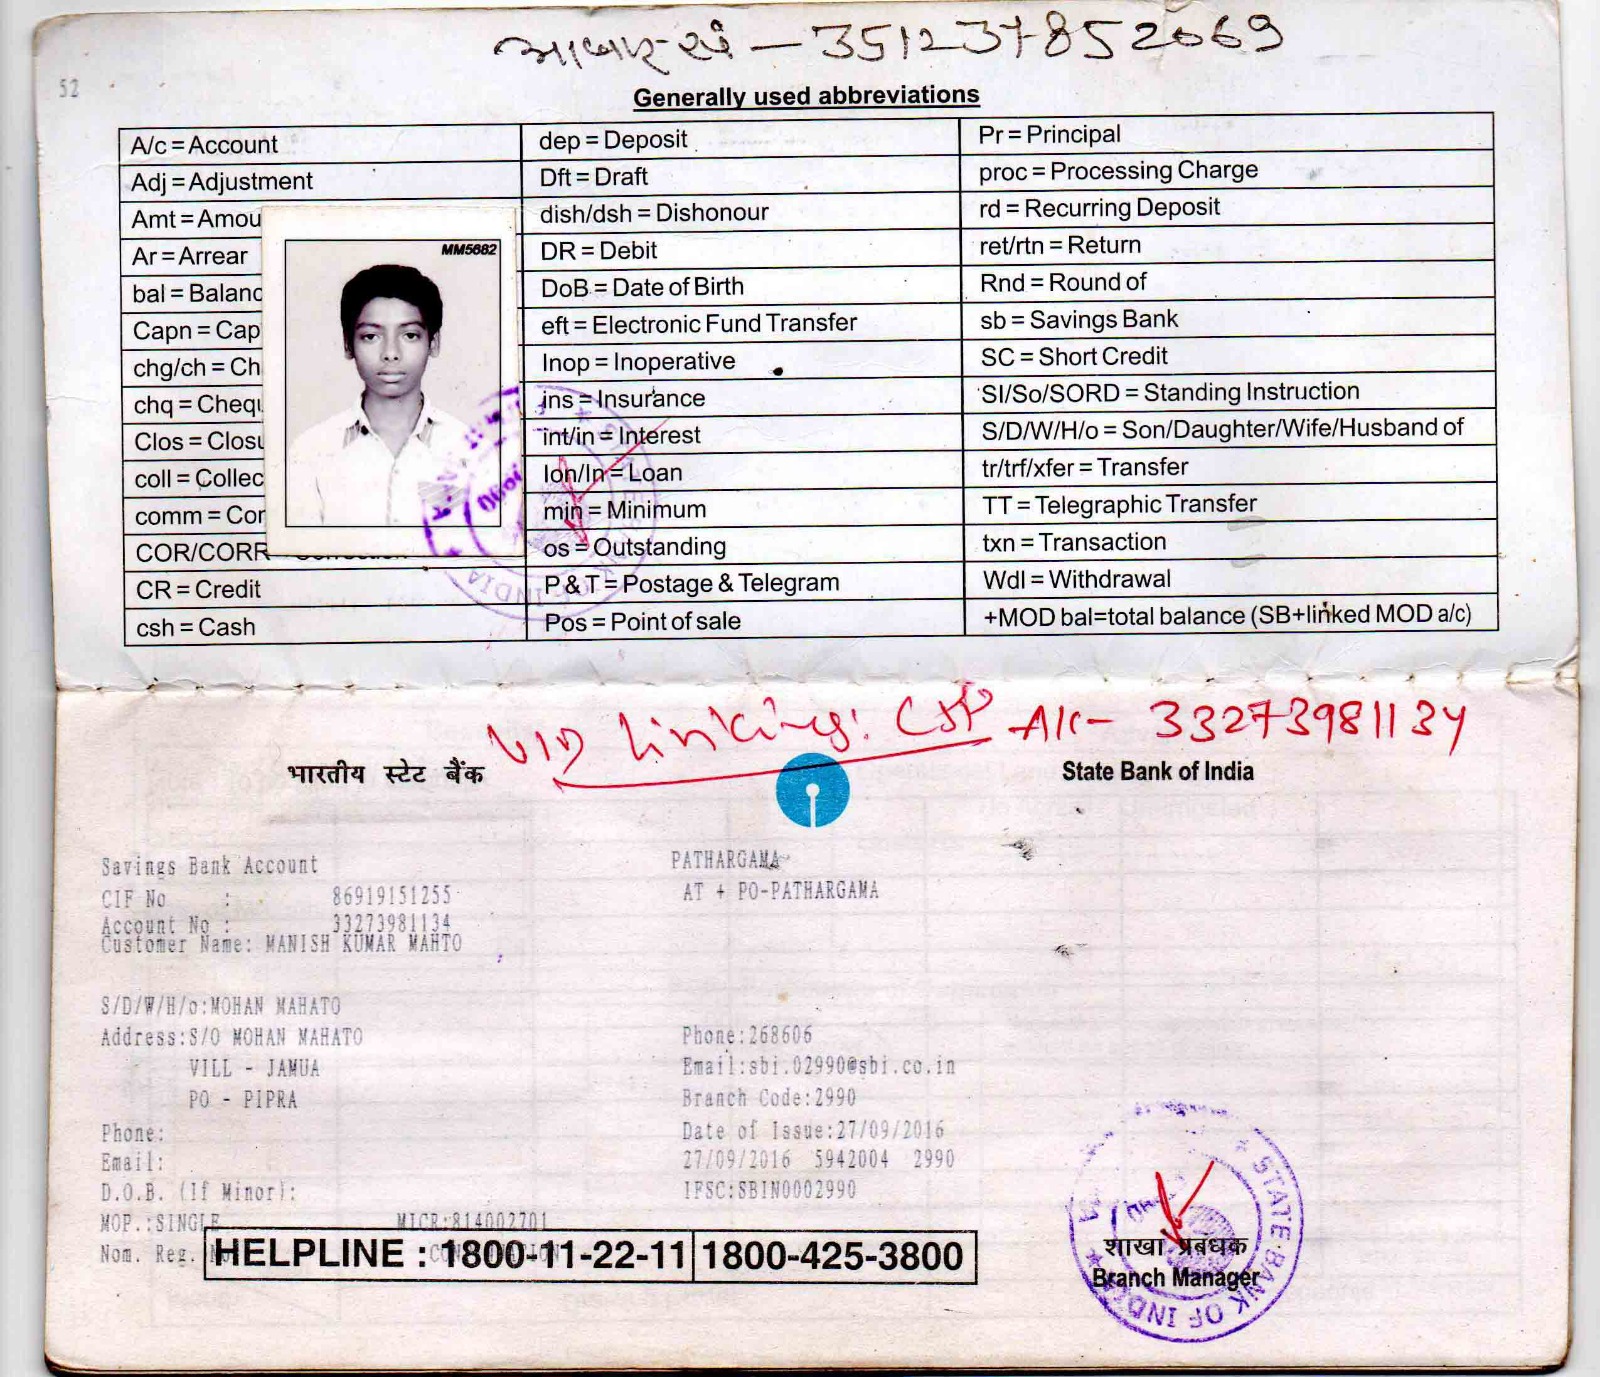 आधार सं — 351237852069
52
Generally used abbreviations
A/c = Account
Adj = Adjustment
Amt = Amou
Ar = Arrear
bal = Balanc
Capn = Cap
chg/ch = Ch
chq = Chequ
Clos = Closu
coll = Collec
comm = Cor
COR/CORR
CR = Credit
csh = Cash
dep = Deposit
Dft = Draft
dish/dsh = Dishonour
DR = Debit
DoB = Date of Birth
eft = Electronic Fund Transfer
Inop = Inoperative
ins = Insurance
int/in = Interest
lon/ln = Loan
min = Minimum
os = Outstanding
P & T = Postage & Telegram
Pos = Point of sale
Pr = Principal
proc = Processing Charge
rd = Recurring Deposit
ret/rtn = Return
Rnd = Round of
sb = Savings Bank
SC = Short Credit
SI/So/SORD = Standing Instruction
S/D/W/H/o = Son/Daughter/Wife/Husband of
tr/trf/xfer = Transfer
TT = Telegraphic Transfer
txn = Transaction
Wdl = Withdrawal
+MOD bal=total balance (SB+linked MOD a/c)
MM5682
UID Linking: CSP A/C- 33273981134
भारतीय स्टेट बैंक
State Bank of India
Savings Bank Account
CIF No : 86919151255
Account No : 33273981134
Customer Name: MANISH KUMAR MAHTO
S/D/W/H/o:MOHAN MAHATO
Address:S/O MOHAN MAHATO
VILL - JAMUA
PO - PIPRA
Phone:
Email:
D.O.B. (If Minor):
MOP.:SINGLE MICR:814002701
Nom. Reg.
PATHARGAMA
AT + PO-PATHARGAMA
Phone:268606
Email:sbi.02990@sbi.co.in
Branch Code:2990
Date of Issue:27/09/2016
27/09/2016 5942004 2990
IFSC:SBIN0002990
HELPLINE : 1800-11-22-11 1800-425-3800
शाखा प्रबंधक
Branch Manager
STATE BANK OF INDIA